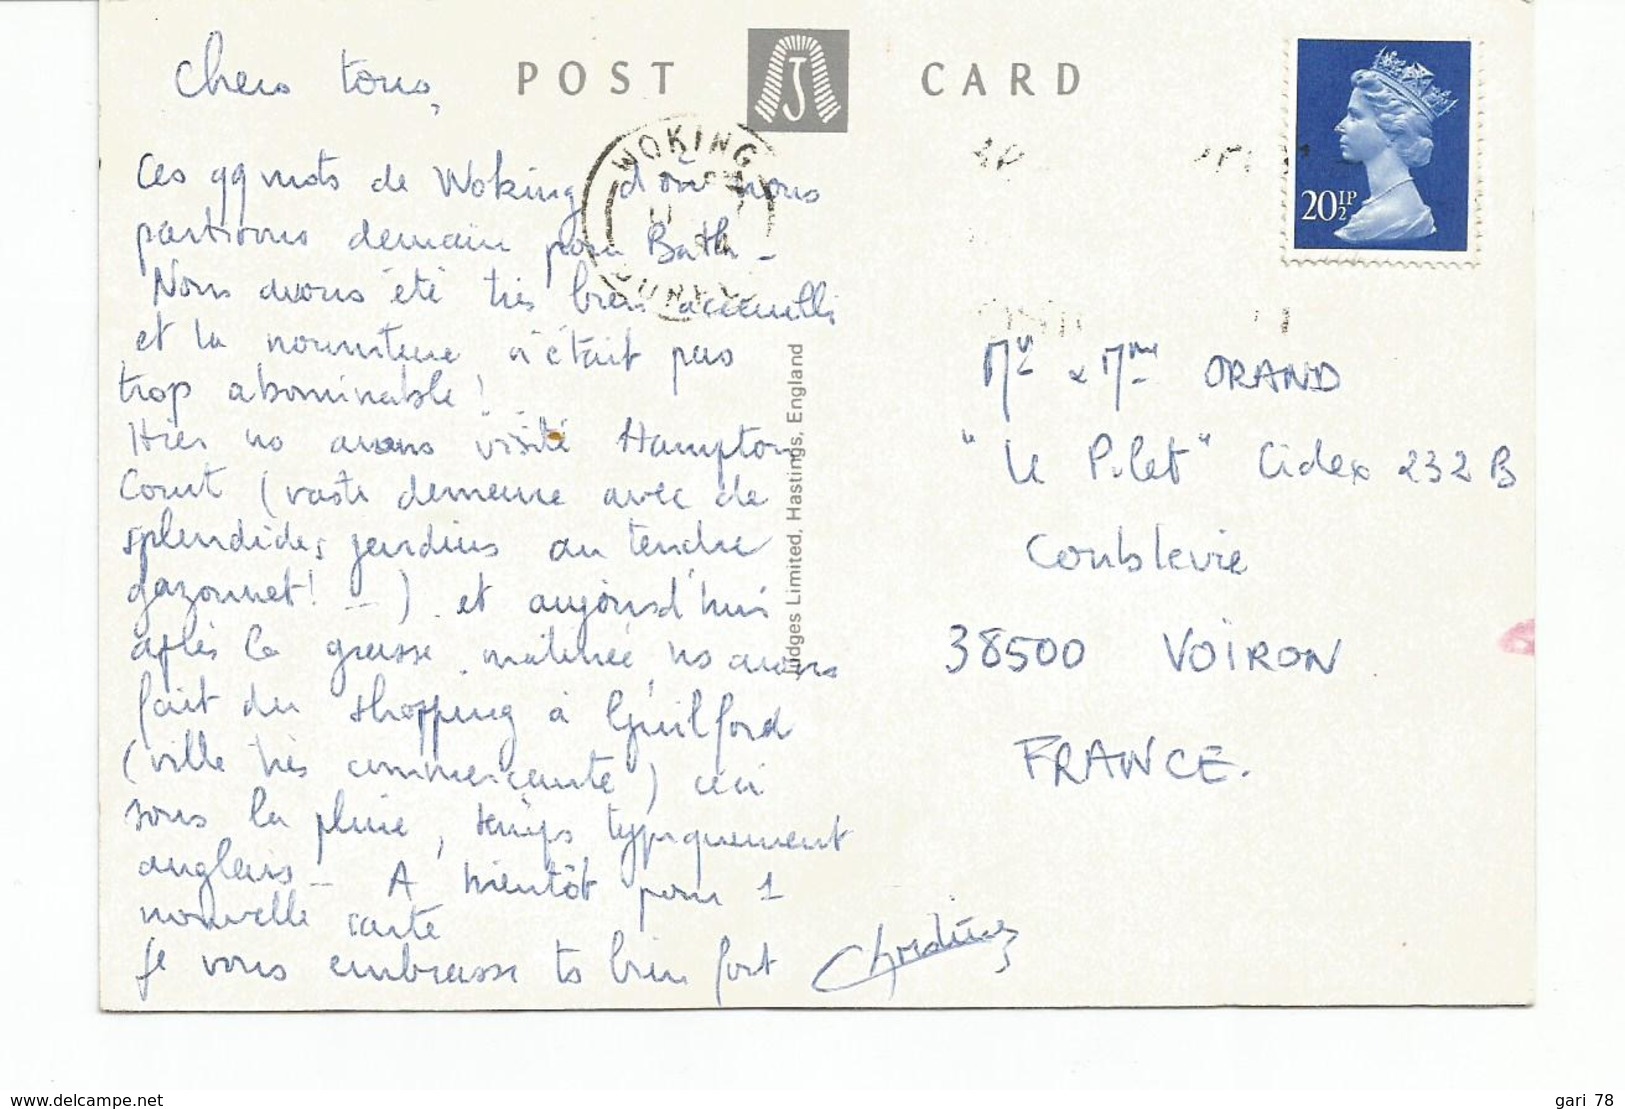 Chers tous,
POST CARD
Ces qq mots de Woking d'où nous
partirons demain pour Bath -
Nous avons été très bien accueilli
et la nourriture n'était pas
trop abominable !
Hier ns avons visité Hampton
Court (vaste demeure avec de
splendides jardins au tendre
gazonnet ! -) et aujourd'hui
après la grasse matinée, ns avons
fait du shopping à Guilford
(ville très commerçante) ceci
sous la pluie, temps typiquement
anglais - A bientôt pour 1
nouvelle carte
Je vous embrasse ts bien fort
WOKING
SURREY
Judges Limited, Hastings, England
20½P
Mr & Mme ORAND
"Le Pilet" Cidex 232 B
Coublevie
38500 VOIRON
FRANCE.
www.delcampe.net
gari 78